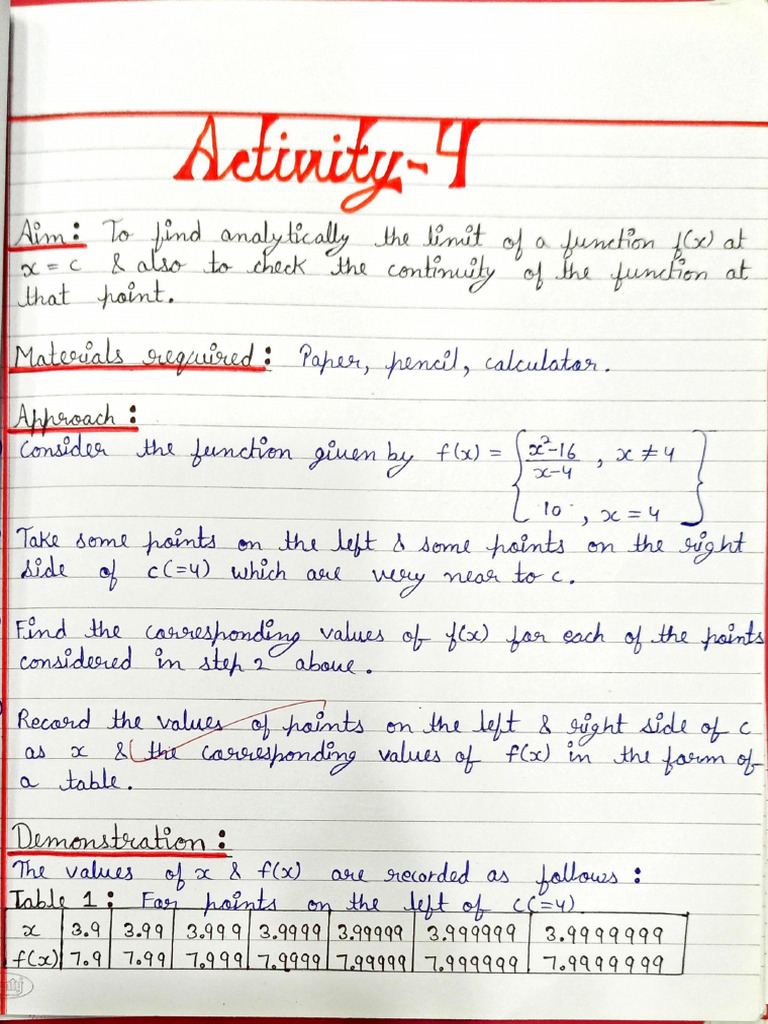 Activity-4
Aim: To find analytically the limit of a function f(x) at
x = c & also to check the continuity of the function at
that point.
Materials required: Paper, pencil, calculator.
Approach:
Consider the function given by f(x) = { x²-16 / x-4 , x ≠ 4
10 , x = 4 }
Take some points on the left & some points on the right
side of c(=4) which are very near to c.
Find the corresponding values of f(x) for each of the points
considered in step 2 above.
Record the values of points on the left & right side of c
as x & the corresponding values of f(x) in the form of
a table.
Demonstration:
The values of x & f(x) are recorded as follows:
Table 1: For points on the left of c(=4)
x 3.9 3.99 3.999 3.9999 3.99999 3.999999 3.9999999
f(x) 7.9 7.99 7.999 7.9999 7.99999 7.999999 7.9999999